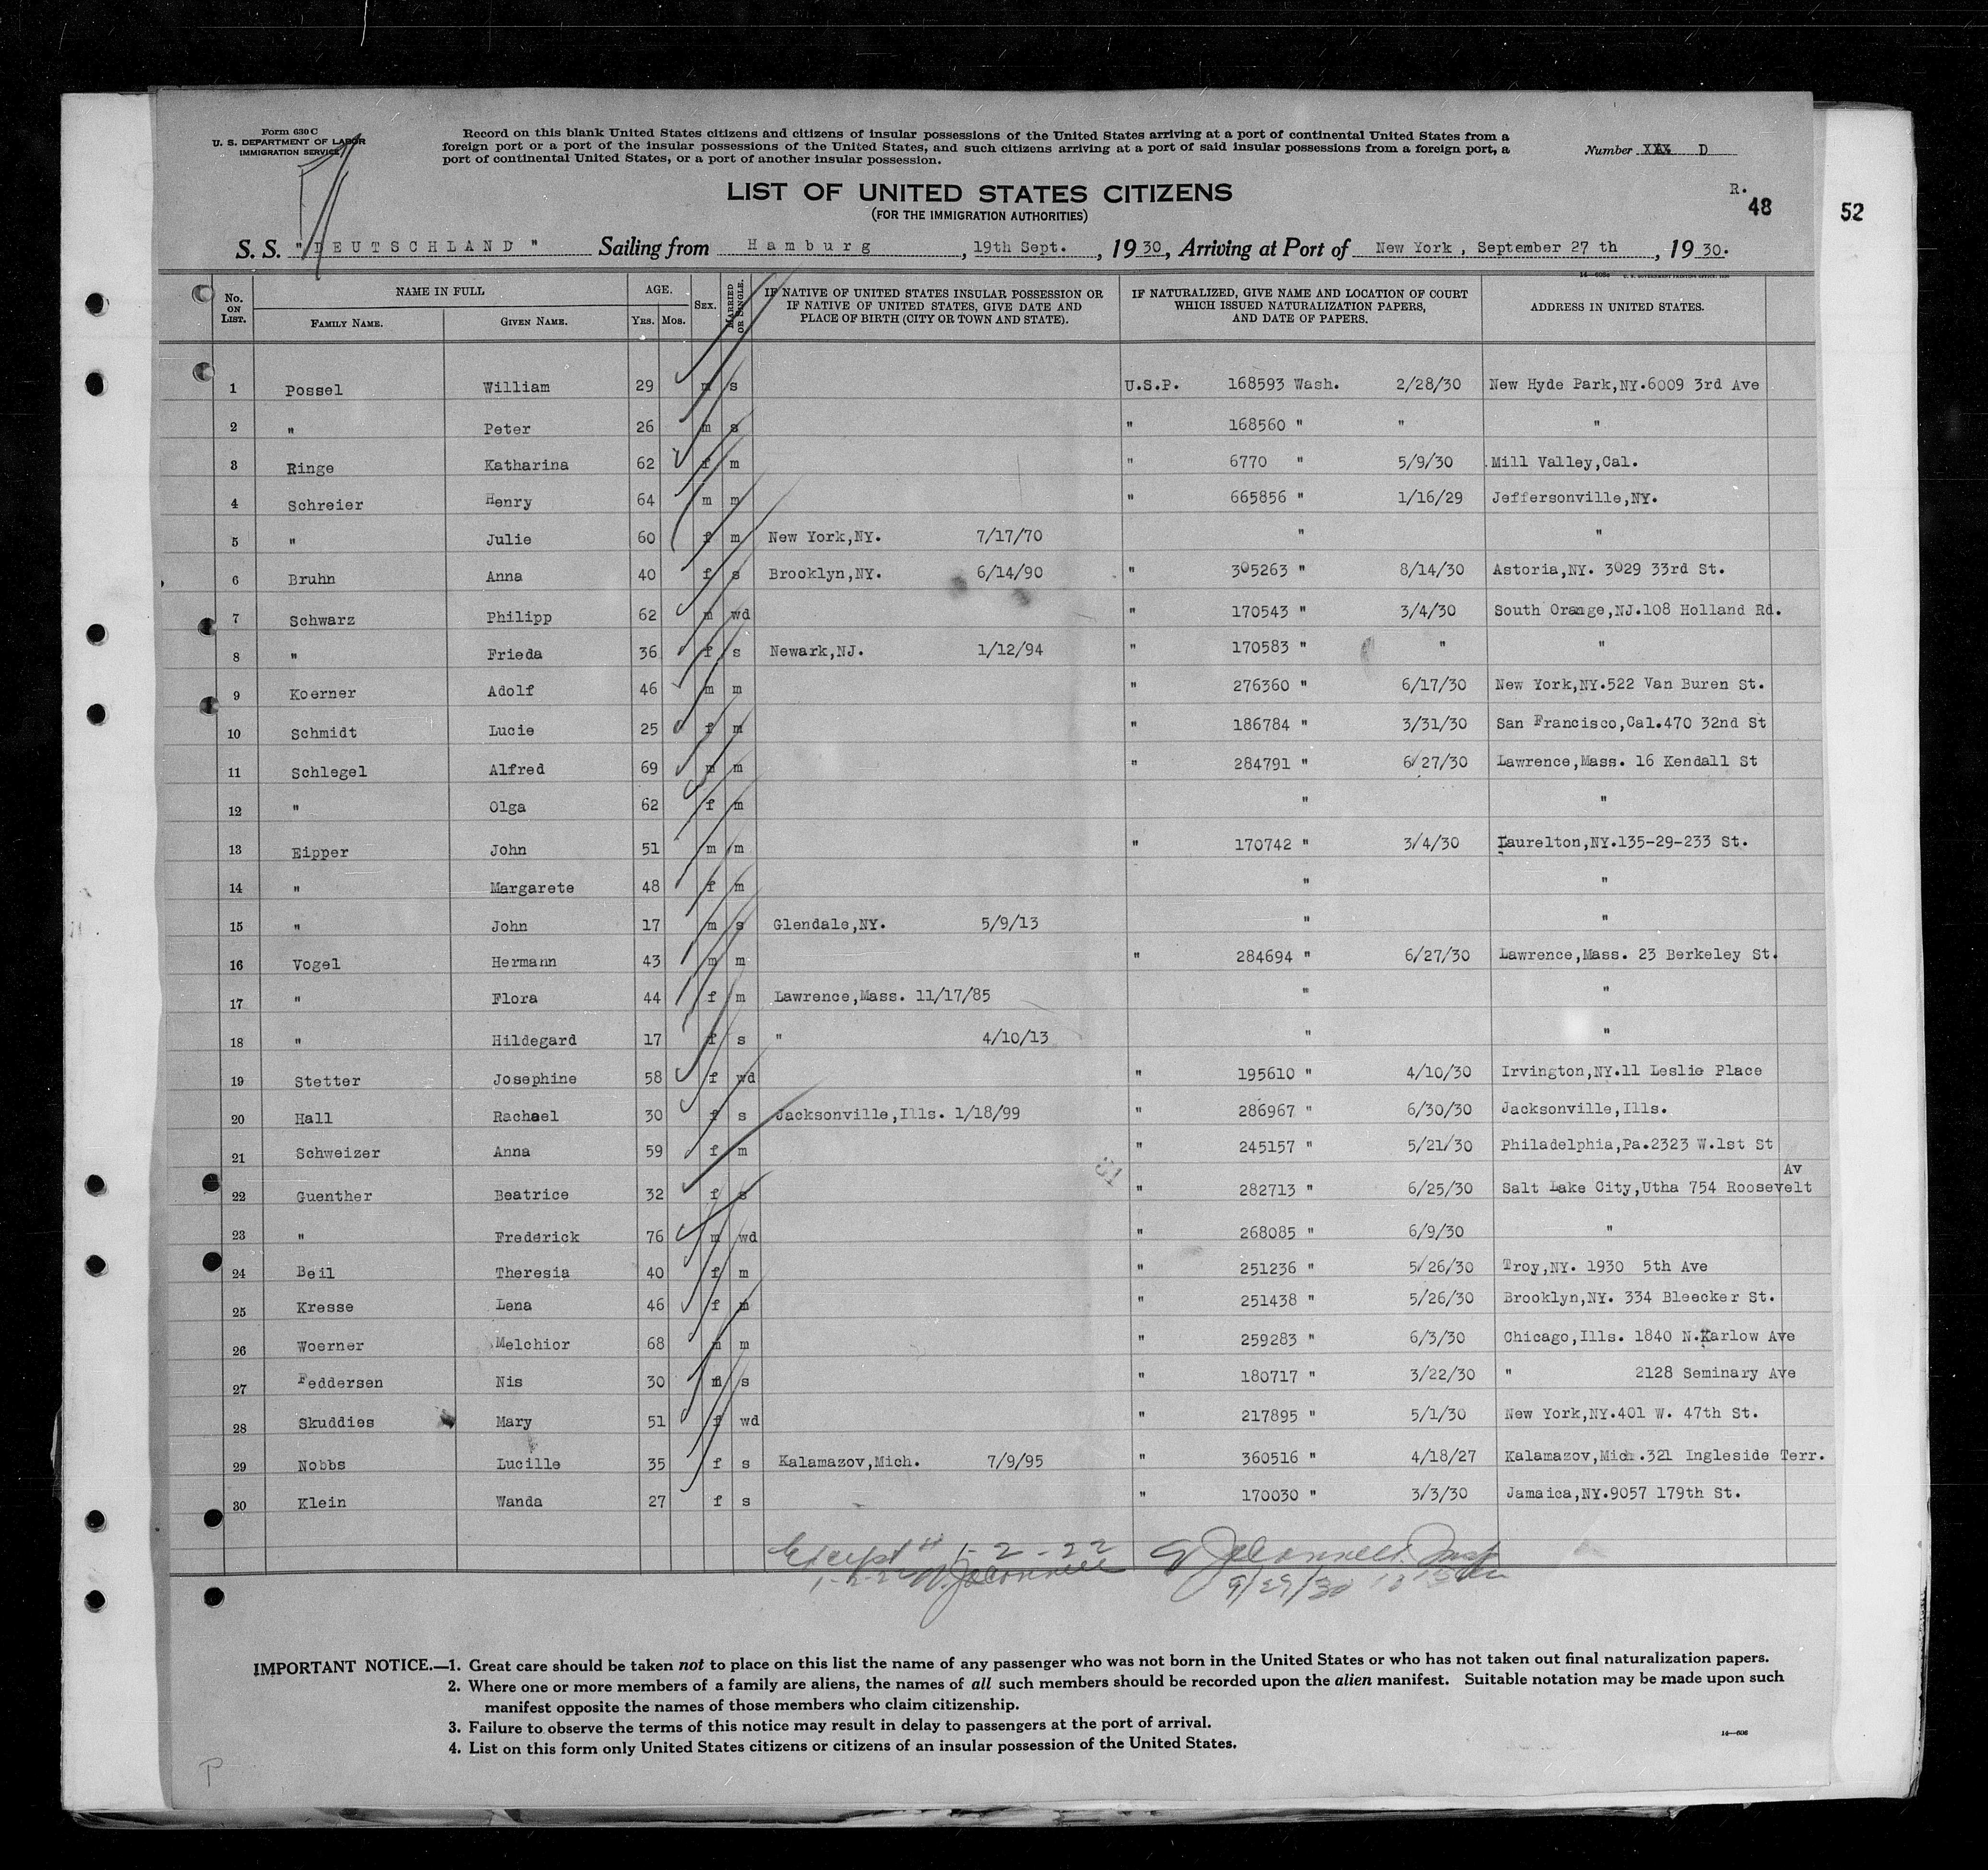 Form 630 C
U. S. DEPARTMENT OF LABOR
IMMIGRATION SERVICE
Record on this blank United States citizens and citizens of insular possessions of the United States arriving at a port of continental United States from a
foreign port or a port of the insular possessions of the United States, and such citizens arriving at a port of said insular possessions from a foreign port, a
port of continental United States, or a port of another insular possession.
Number D
LIST OF UNITED STATES CITIZENS
(FOR THE IMMIGRATION AUTHORITIES)
R.
48
52
S. S. "DEUTSCHLAND" Sailing from Hamburg, 19th Sept., 1930, Arriving at Port of New York, September 27 th, 1930.
14—606a U. S. GOVERNMENT PRINTING OFFICE: 1929
No. ON LIST. NAME IN FULL FAMILY NAME. GIVEN NAME. AGE. YRS. MOS. SEX. MARRIED OR SINGLE. IF NATIVE OF UNITED STATES INSULAR POSSESSION OR IF NATIVE OF UNITED STATES, GIVE DATE AND PLACE OF BIRTH (CITY OR TOWN AND STATE). IF NATURALIZED, GIVE NAME AND LOCATION OF COURT WHICH ISSUED NATURALIZATION PAPERS, AND DATE OF PAPERS. ADDRESS IN UNITED STATES.
1 Possel William 29 m s U.S.P. 168593 Wash. 2/28/30 New Hyde Park,NY.6009 3rd Ave
2 " Peter 26 m s " 168560 " " "
3 Ringe Katharina 62 f m " 6770 " 5/9/30 Mill Valley,Cal.
4 Schreier Henry 64 m m " 665856 " 1/16/29 Jeffersonville,NY.
5 " Julie 60 f m New York,NY. 7/17/70 " "
6 Bruhn Anna 40 f s Brooklyn,NY. 6/14/90 " 305263 " 8/14/30 Astoria,NY. 3029 33rd St.
7 Schwarz Philipp 62 m wd " 170543 " 3/4/30 South Orange,NJ.108 Holland Rd.
8 " Frieda 36 f s Newark,NJ. 1/12/94 " 170583 " " "
9 Koerner Adolf 46 m m " 276360 " 6/17/30 New York,NY.522 Van Buren St.
10 Schmidt Lucie 25 f m " 186784 " 3/31/30 San Francisco,Cal.470 32nd St
11 Schlegel Alfred 69 m m " 284791 " 6/27/30 Lawrence,Mass. 16 Kendall St
12 " Olga 62 f m " "
13 Eipper John 51 m m " 170742 " 3/4/30 Laurelton,NY.135-29-233 St.
14 " Margarete 48 f m " "
15 " John 17 m s Glendale,NY. 5/9/13 " "
16 Vogel Hermann 43 m m " 284694 " 6/27/30 Lawrence,Mass. 23 Berkeley St.
17 " Flora 44 f m Lawrence,Mass. 11/17/85 " "
18 " Hildegard 17 f s " 4/10/13 " "
19 Stetter Josephine 58 f wd " 195610 " 4/10/30 Irvington,NY.11 Leslie Place
20 Hall Rachael 30 f s Jacksonville,Ills. 1/18/99 " 286967 " 6/30/30 Jacksonville,Ills.
21 Schweizer Anna 59 f m " 245157 " 5/21/30 Philadelphia,Pa.2323 W.1st St
22 Guenther Beatrice 32 f s " 282713 " 6/25/30 Salt Lake City,Utha 754 Roosevelt Av
23 " Frederick 76 m wd " 268085 " 6/9/30 "
24 Beil Theresia 40 f m " 251236 " 5/26/30 Troy,NY. 1930 5th Ave
25 Kresse Lena 46 f m " 251438 " 5/26/30 Brooklyn,NY. 334 Bleecker St.
26 Woerner Melchior 68 m m " 259283 " 6/3/30 Chicago,Ills. 1840 N.Karlow Ave
27 Feddersen Nis 30 m s " 180717 " 3/22/30 " 2128 Seminary Ave
28 Skuddies Mary 51 f wd " 217895 " 5/1/30 New York,NY.401 W. 47th St.
29 Nobbs Lucille 35 f s Kalamazov,Mich. 7/9/95 " 360516 " 4/18/27 Kalamazov,Mich.321 Ingleside Terr.
30 Klein Wanda 27 f s " 170030 " 3/3/30 Jamaica,NY.9057 179th St.
Except # 1-2-22
9/29/30
IMPORTANT NOTICE.—1. Great care should be taken not to place on this list the name of any passenger who was not born in the United States or who has not taken out final naturalization papers.
2. Where one or more members of a family are aliens, the names of all such members should be recorded upon the alien manifest. Suitable notation may be made upon such
manifest opposite the names of those members who claim citizenship.
3. Failure to observe the terms of this notice may result in delay to passengers at the port of arrival.
4. List on this form only United States citizens or citizens of an insular possession of the United States.
14—606
P